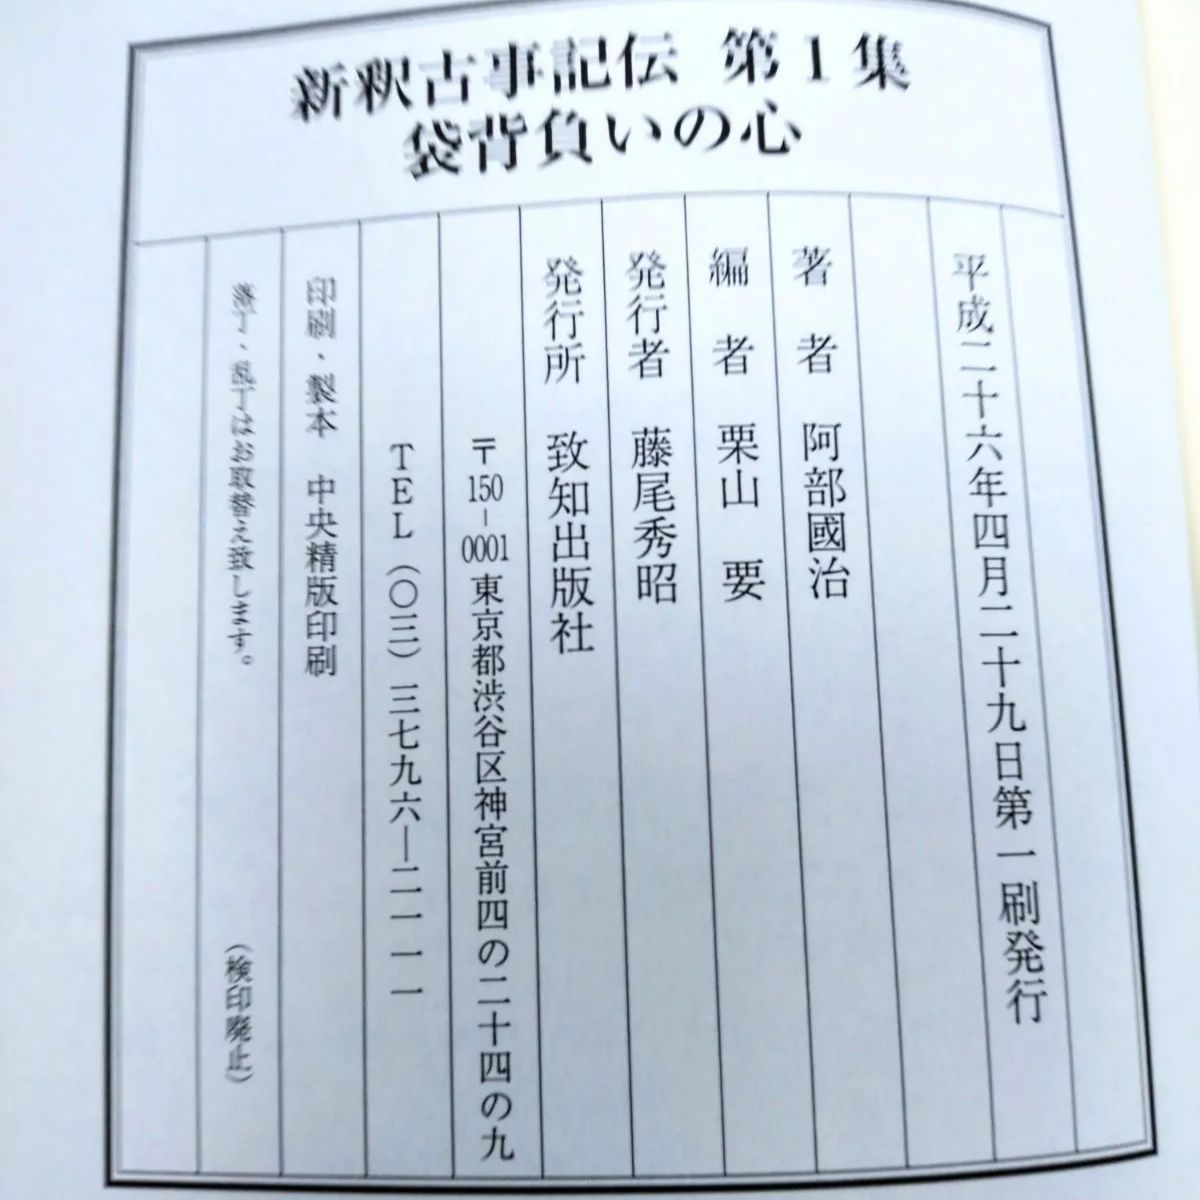 新釈古事記伝 第1集
袋背負いの心
平成二十六年四月二十九日第一刷発行
著者 阿部國治
編者 栗山 要
発行者 藤尾秀昭
発行所 致知出版社
〒150-0001 東京都渋谷区神宮前四の二十四の九
TEL(〇三)三七九六―二一一一
印刷・製本 中央精版印刷
落丁・乱丁はお取替え致します。 (検印廃止)